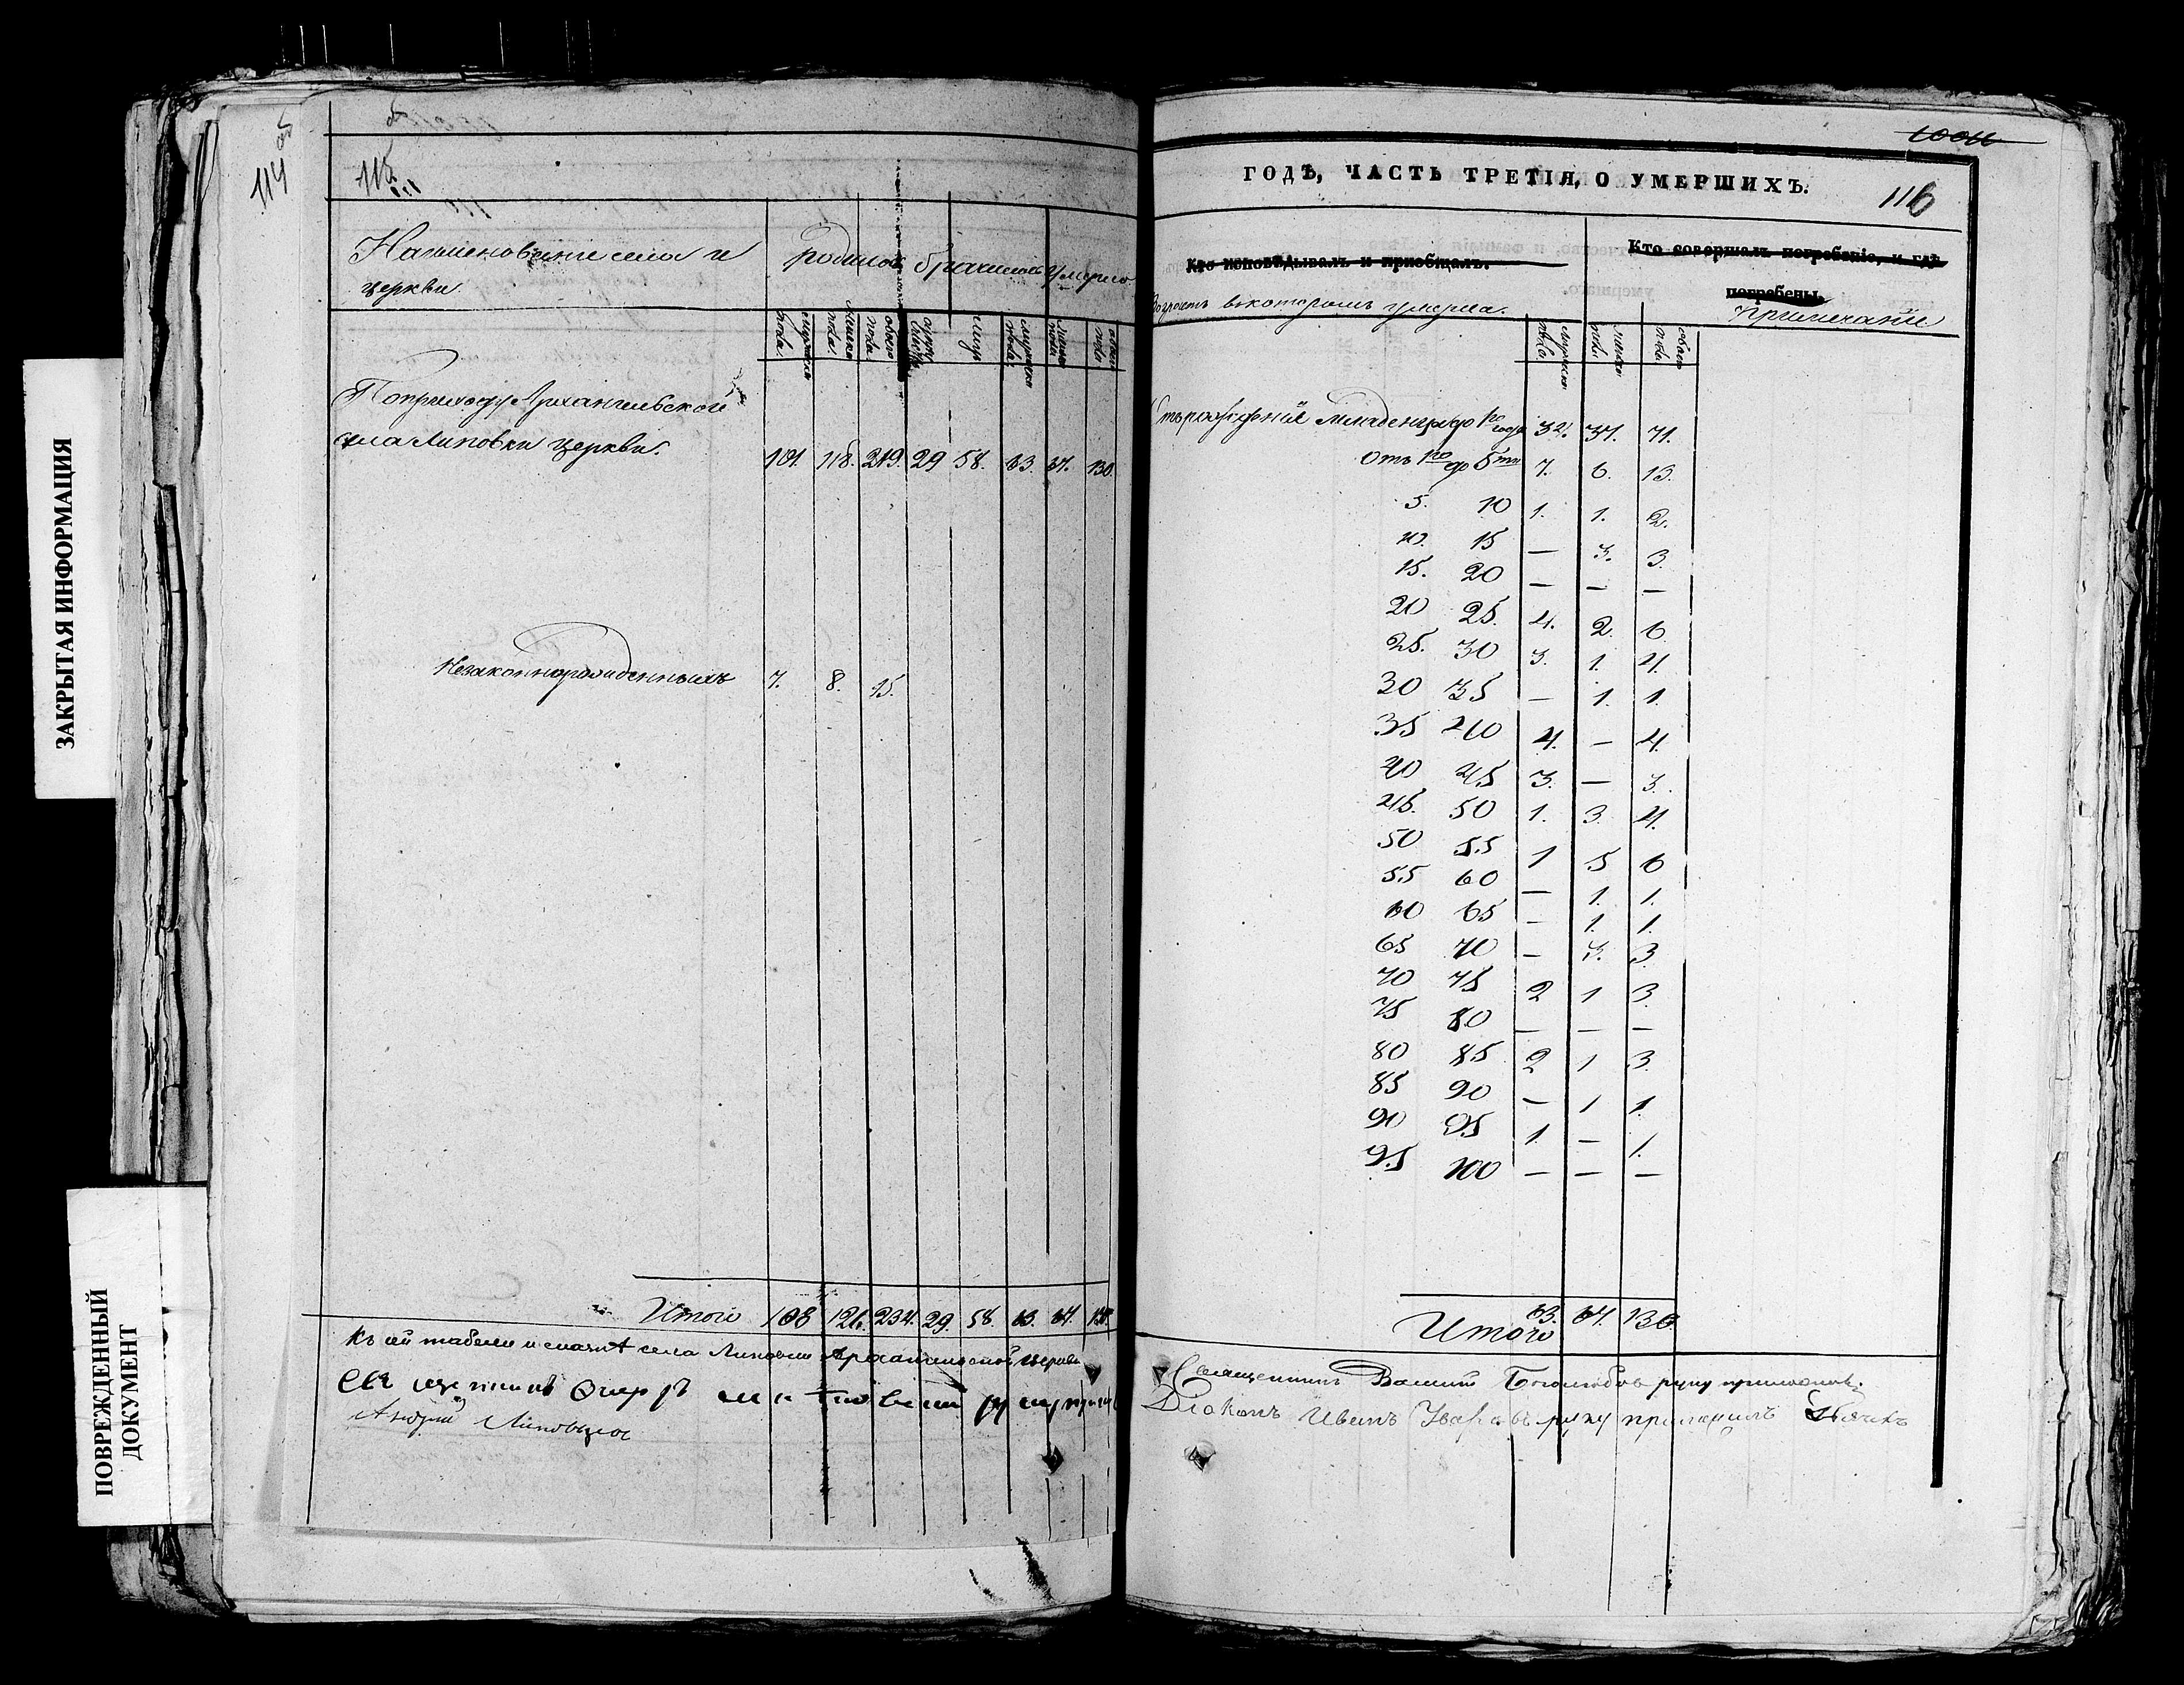 ЗАКРЫТАЯ ИНФОРМАЦИЯ
ПОВРЕЖДЕННЫЙ
ДОКУМЕНТ
114 об
115
Наименование села и церкви.
родилось бракомъ умерло
мужеска пола. женска пола. обоего пола. лицъ мужеска пола. женска пола обоего пола
По приходу Архангельской
села Липовки церкви. 101. 118. 219. 29 58. 63. 67. 130.
Незаконнорожденныхъ 7. 8. 15.
Итого 108 126. 234. 29. 58. 63. 67. 130.
Къ сей табели села Липовки Архангельской церкви
Андрей
ГОДѢ, ЧАСТЬ ТРЕТІЯ, О УМЕРШИХЪ.
116
Кто исповѣдывалъ и приобщалъ.
Кто совершалъ погребеніе, и гдѣ
погребены.
Возрастъ въ которомъ умерли.
Примечаніе
мужеска пола женска пола обоего пола
Отъ рожденія младенца до 1го года 34. 37. 71.
Отъ 1го до 5ти 7. 6. 13.
5. 10 1. 1. 2.
10. 15 — 3. 3.
15. 20 — — —
20 25. 4. 2. 6.
25. 30 3. 1. 4.
30 35 — 1. 1.
35 40 4. — 4.
40 45 3. — 3.
45. 50 1. 3. 4.
50 55 1 5 6
55 60 — 1. 1.
60 65 — 1. 1.
65 70 — 3. 3.
70 75 2 1 3.
75 80 — — —
80 85 2 1 3.
85 90 — 1 1.
90 95 1. — 1.
95 100 — — —
Итого 63. 67. 130.
Священникъ Василий Боголюбовъ руку приложилъ.
Діаконъ Иванъ Уваровъ руку приложилъ Дьячекъ